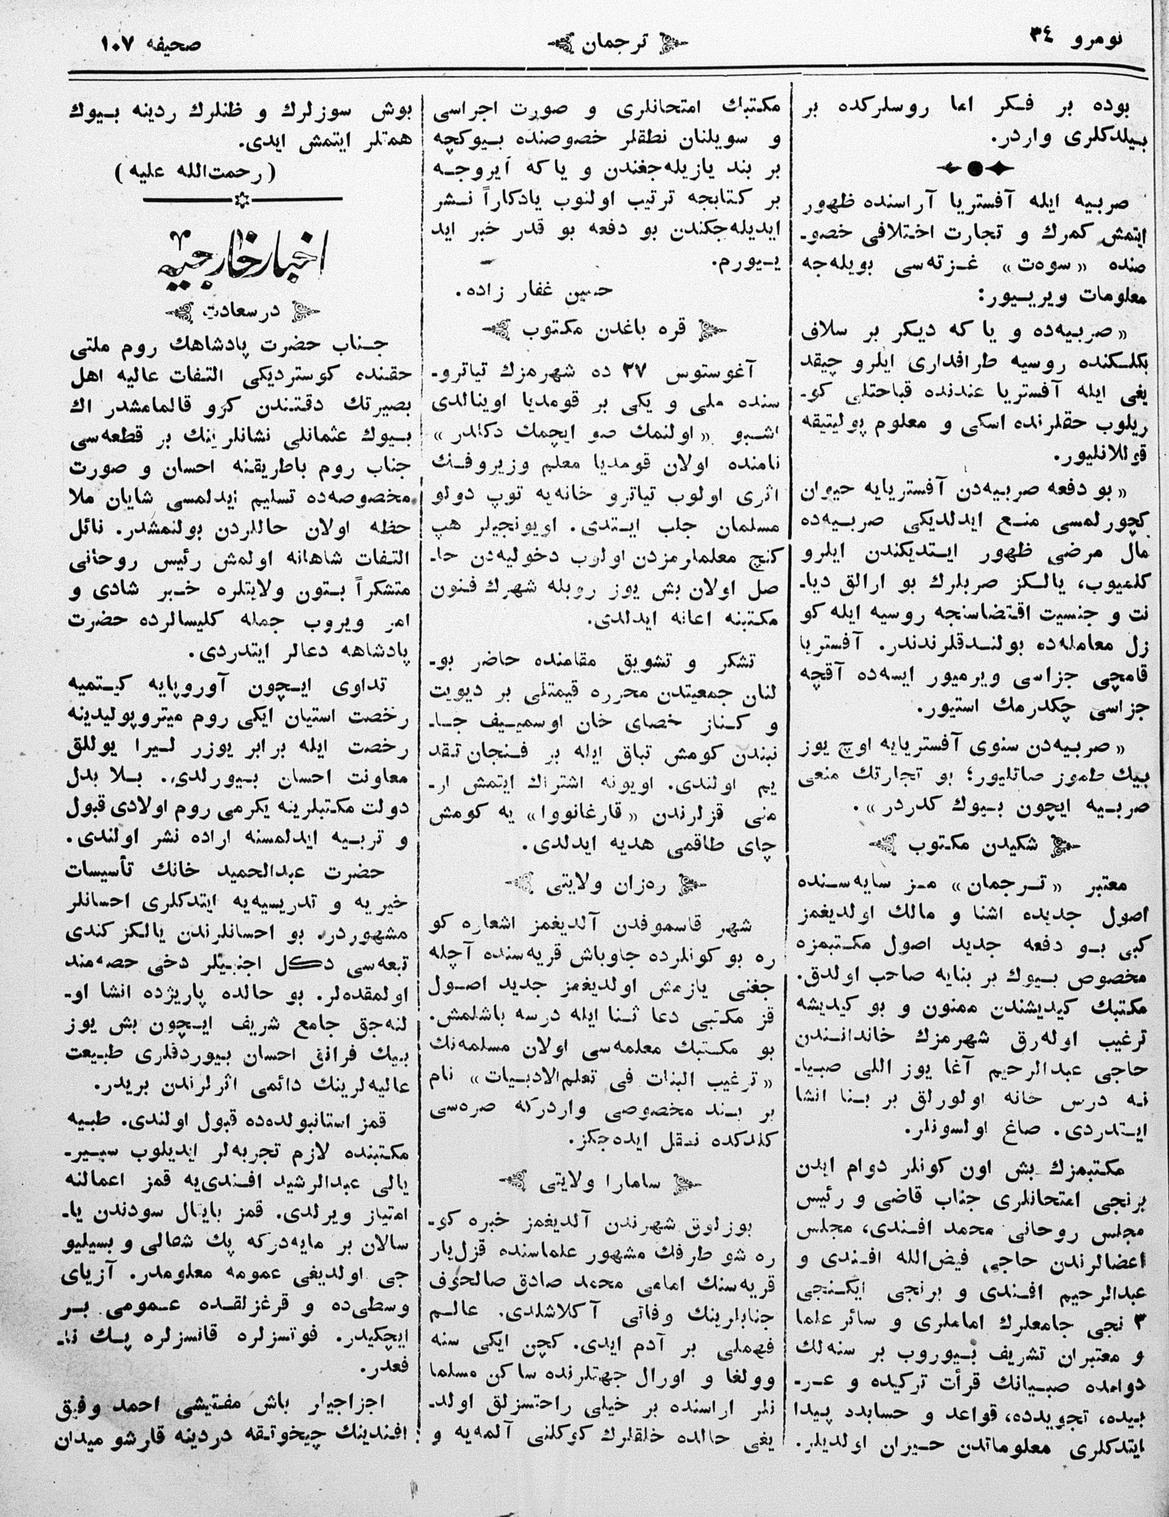 نومرو ٣٤
ترجمان
صحيفه ١٠٧
بوده بر فكر اما روسلركده بر
بيلدكلرى واردر.
صربيه ايله آفستريا آراسنده ظهور
ايتمش كمرك و تجارت اختلافى خصو-
صنده «سوەت» غزته‌سى بويله‌جه
معلومات ويرييور:
«صربيه‌ده و ياكه ديكر بر سلاف
بكلكنده روسيه طرافدارى ايلرو چيقد
يغى ايله آفستريا عندنده قباحتلى كو-
ريلوب حقلرنده اسكى و معلوم پوليتيقه
قوللانليور.
«بو دفعه صربيه‌دن آفسترياﻳه حيوان
كچورلمسى منع ايدلديكى صربيه‌ده
مال مرضى ظهور ايتديكندن ايلرو
كلميوب، يالكز صربلرك بو ارالق ديا-
نت و جنسيت اقتضاسنجه روسيه ايله كو
زل معامله‌ده بولندقلرندندر. آفستريا
قامچى جزاسى ويرميور ايسه‌ده آقچه
جزاسى چكدرمك استيور.
«صربيه‌دن سنوى آفسترياﻳه اوچ يوز
بيك طموز صاتليور؛ بو تجارتك منعى
صربيه ايچون بيوك كدردر».
شكيدن مكتوب
معتبر «ترجمان» مز سايه‌سنده
اصول جديده اشنا و مالك اولديغمز
كبى بو دفعه جديد اصول مكتبمزه
مخصوص بيوك بر بنايه صاحب اولدق.
مكتبك كيديشندن ممنون و بو كيديشه
ترغيب اوله‌رق شهرمزك خانداندندن
حاجى عبدالرحيم آغا يوز اللى صبيا-
نه درس خانه اولورلق بر بنا انشا
ايتدردى. صاغ اولسونلر.
مكتبمزك بش اون كونلر دوام ايدن
برنجى امتحانلرى جناب قاضى و رئيس
مجلس روحانى محمد افندى، مجلس
اعضالرندن حاجى فيض‌الله افندى و
عبدالرحيم افندى و برنجى ايكنجى
٣ نجى جامعلرك اماملرى و سائر علما
و معتبران تشريف بيوروب بر سنه‌لك
دوامده صبيانك قرأت تركيده و عر-
بيده، تجويدده، قواعد و حسابده پيدا
ايتدكلرى معلوماتدن حيران اولديلر.
مكتبك امتحانلرى و صورت اجراسى
و سويلنان نطقلر خصوصنده بيوكچه
بر بند يازيله‌جغندن و ياكه آيروجه
بر كتابجه ترتيب اولنوب يادكاراً نشر
ايديله‌جكندن بو دفعه بو قدر خبر ايد
ييورم.
حسين غفار زاده.
قره باغدن مكتوب
آغوستوس ٢٧ ده شهرمزك تياترو-
سنده ملى و يكى بر قومديا اوينالدى
اشبو «اولنمك صو ايچمك دكلدر»
نامنده اولان قومديا معلم وزيروفك
اثرى اولوب تياترو خانه‌يه توپ دولو
مسلمان جلب ايتدى. اويونجيلر هپ
كنچ معلمارمزدن اولوب دخوليه‌دن حا-
صل اولان بش يوز روبله شهرك فنون
مكتبنه اعانه ايدلدى.
تشكر و تشويق مقامنده حاضر بو-
لنان جمعيتدن محرره قيمتلى بر ديويت
و كناز خصاى خان اوسمييف جا-
نبندن كومش تباق ايله بر فنجان تقد
يم اولندى. اويونه اشتراك ايتمش ار-
منى قزلرندن «قارغانووا» يه كومش
چاى طاقمى هديه ايدلدى.
رەزان ولايتى
شهر قاسموفدن آلديغمز اشعاره كو
ره بو كونلرده جاوباش قريه‌سنده آچله
جغنى يازمش اولديغمز جديد اصول
قز مكتبى دعا ثنا ايله درسه باشلمش.
بو مكتبك معلمه‌سى اولان مسلمه‌نك
«ترغيب البنات فى تعلم‌الادبيات» نام
بر بند مخصوصى واردركه صره‌سى
كلدكده نقل ايده‌جكز.
سامارا ولايتى
بوزلوق شهرندن آلديغمز خبره كو-
ره شو طرفك مشهور علماسنده قزل‌يار
قريه‌سنك امامى محمد صادق صالحوف
جنابلرينك وفاتى آكلاشلدى. عالم
فهملى بر آدم ايدى. كچن ايكى سنه
وولغا و اورال جهتلرنده ساكن مسلما
نلر اراسنده بر خيلى راحتسزلق اولد-
يغى حالده خلقلرك كوكلنى آلمه‌يه و
بوش سوزلرك و ظنلرك ردينه بيوك
همتلر ايتمش ايدى.
(رحمت‌الله عليه)
اخبار خارجيه
درسعادت
جناب حضرت پادشاهك روم ملتى
حقنده كوستردیكى التفات عاليه اهل
بصيرتك دقتندن كرو قالمامشدر اك
بيوك عثمانلى نشانلرينك بر قطعه‌سى
جناب روم باطريقنه احسان و صورت
مخصوصه‌ده تسليم ايدلمسى شايان ملا
حظه اولان حاللردن بولنمشدر. نائل
التفات شاهانه اولمش رئيس روحانى
متشكراً بتون ولايتلره خبر شادى و
امر ويروب جمله كليسالرده حضرت
پادشاهه دعالر ايتدردى.
تداوى ايچون آوروپايه كيتميه
رخصت استيان ايكى روم ميتروپوليدينه
رخصت ايله برابر يوزر ليرا يوللق
معاونت احسان بيورلدى. بلا بدل
دولت مكتبلرينه يكرمى روم اولادى قبول
و تربيه ايدلمسنه اراده نشر اولندى.
حضرت عبدالحميد خانك تأسيسات
خيريه و تدريسيه‌يه ايتدكلرى احسانلر
مشهوردر. بو احسانلرندن يالكز كندى
تبعه‌سى دكل اجنبيلر دخى حصه‌مند
اولمقده‌لر. بو حالده پاريژده انشا او-
لنه‌جق جامع شريف ايچون بش يوز
بيك فرانق احسان بيوردقلرى طبيعت
عاليه‌لرينك دائمى اثرلرندن بريدر.
قمز استانبولده‌ده قبول اولندى. طبيه
مكتبنده لازم تجربه‌لر ايديلوب سيبير-
يالى عبدالرشيد افندى‌يه قمز اعمالنه
امتياز ويرلدى. قمز بايتال سودندن يا-
سالان بر مايه‌دركه پك شفالى و بسيليو
جى اولديغى عمومه معلومدر. آزياى
وسطى‌ده و قرغزلقده عمومى بر
ايچكيدر. فوتسزلره قانسزلره پك نا-
فعدر.
اجزاجيلر باش مفتيشى احمد وفيق
افندينك چيخوتقه دردينه قارشو ميدان